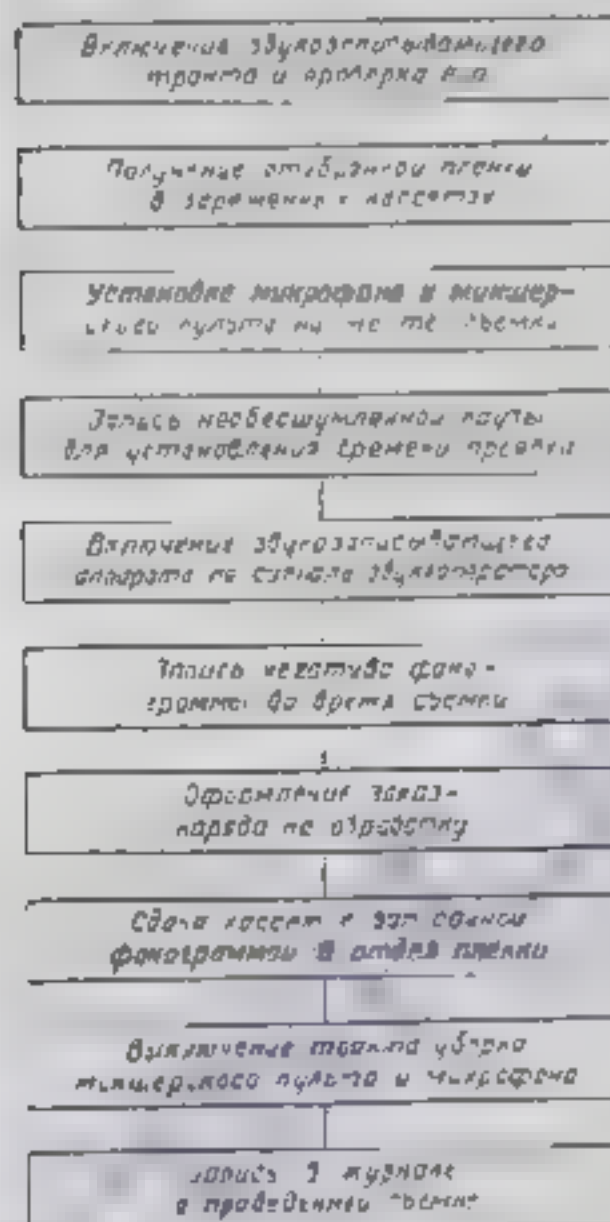 Включение звукозаписывающего
тракта и проверка его
Получение отобранной пленки
в заряженных кассетах
Установка микрофона и микшер-
ского пульта на месте съемки
Запись необесшумленной паузы
для установления времени проявки
Включение звукозаписывающего
аппарата по сигналу звукооператора
Запись негатива фоно-
граммы во время съемки
Оформление заказ-
наряда на обработку
Сдача кассет с записанной
фонограммой в отдел пленки
Выключение тракта уборка
микшерского пульта и микрофона
Запись в журнале
о проведенной съемке